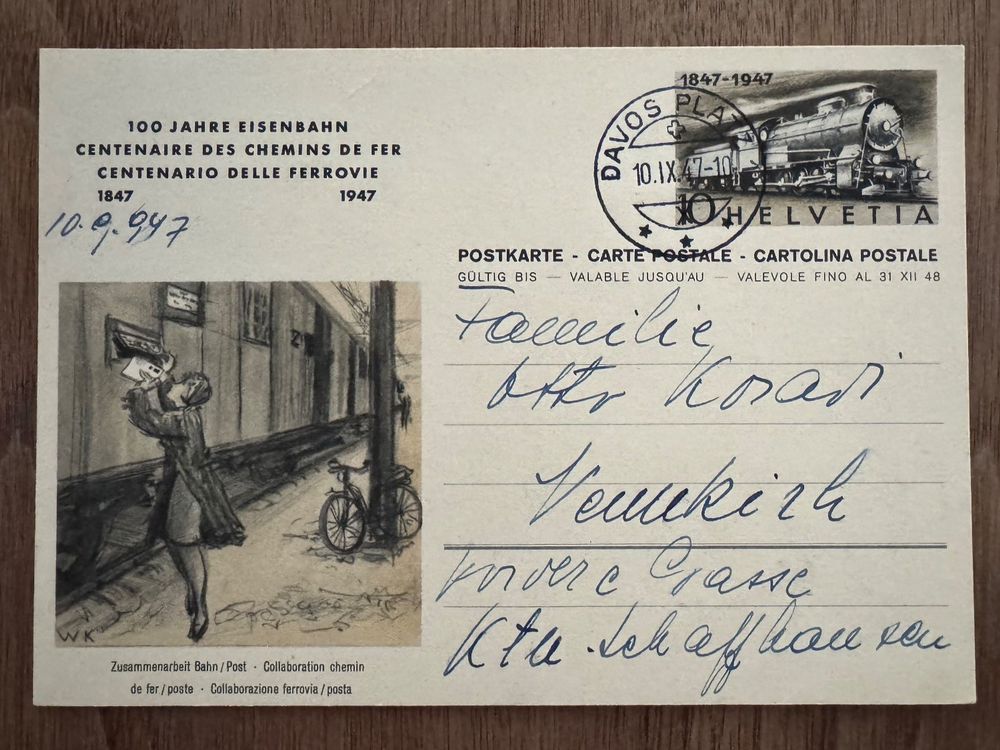 100 JAHRE EISENBAHN
CENTENAIRE DES CHEMINS DE FER
CENTENARIO DELLE FERROVIE
1847 1947
10.9.947
1847-1947
DAVOS PLATZ
10.IX.47-10
10 HELVETIA
POSTKARTE - CARTE POSTALE - CARTOLINA POSTALE
GÜLTIG BIS — VALABLE JUSQU'AU — VALEVOLE FINO AL 31 XII 48
Familie
Otto Koradi
Neunkirch
vordere Gasse
Ktn. Schaffhausen
WK
Zusammenarbeit Bahn/Post · Collaboration chemin
de fer/poste · Collaborazione ferrovia/posta